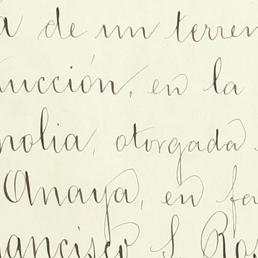 a de un terren
ucción, en la
nolia, otorgada
Anaya, en fa
rancisco S. Ros